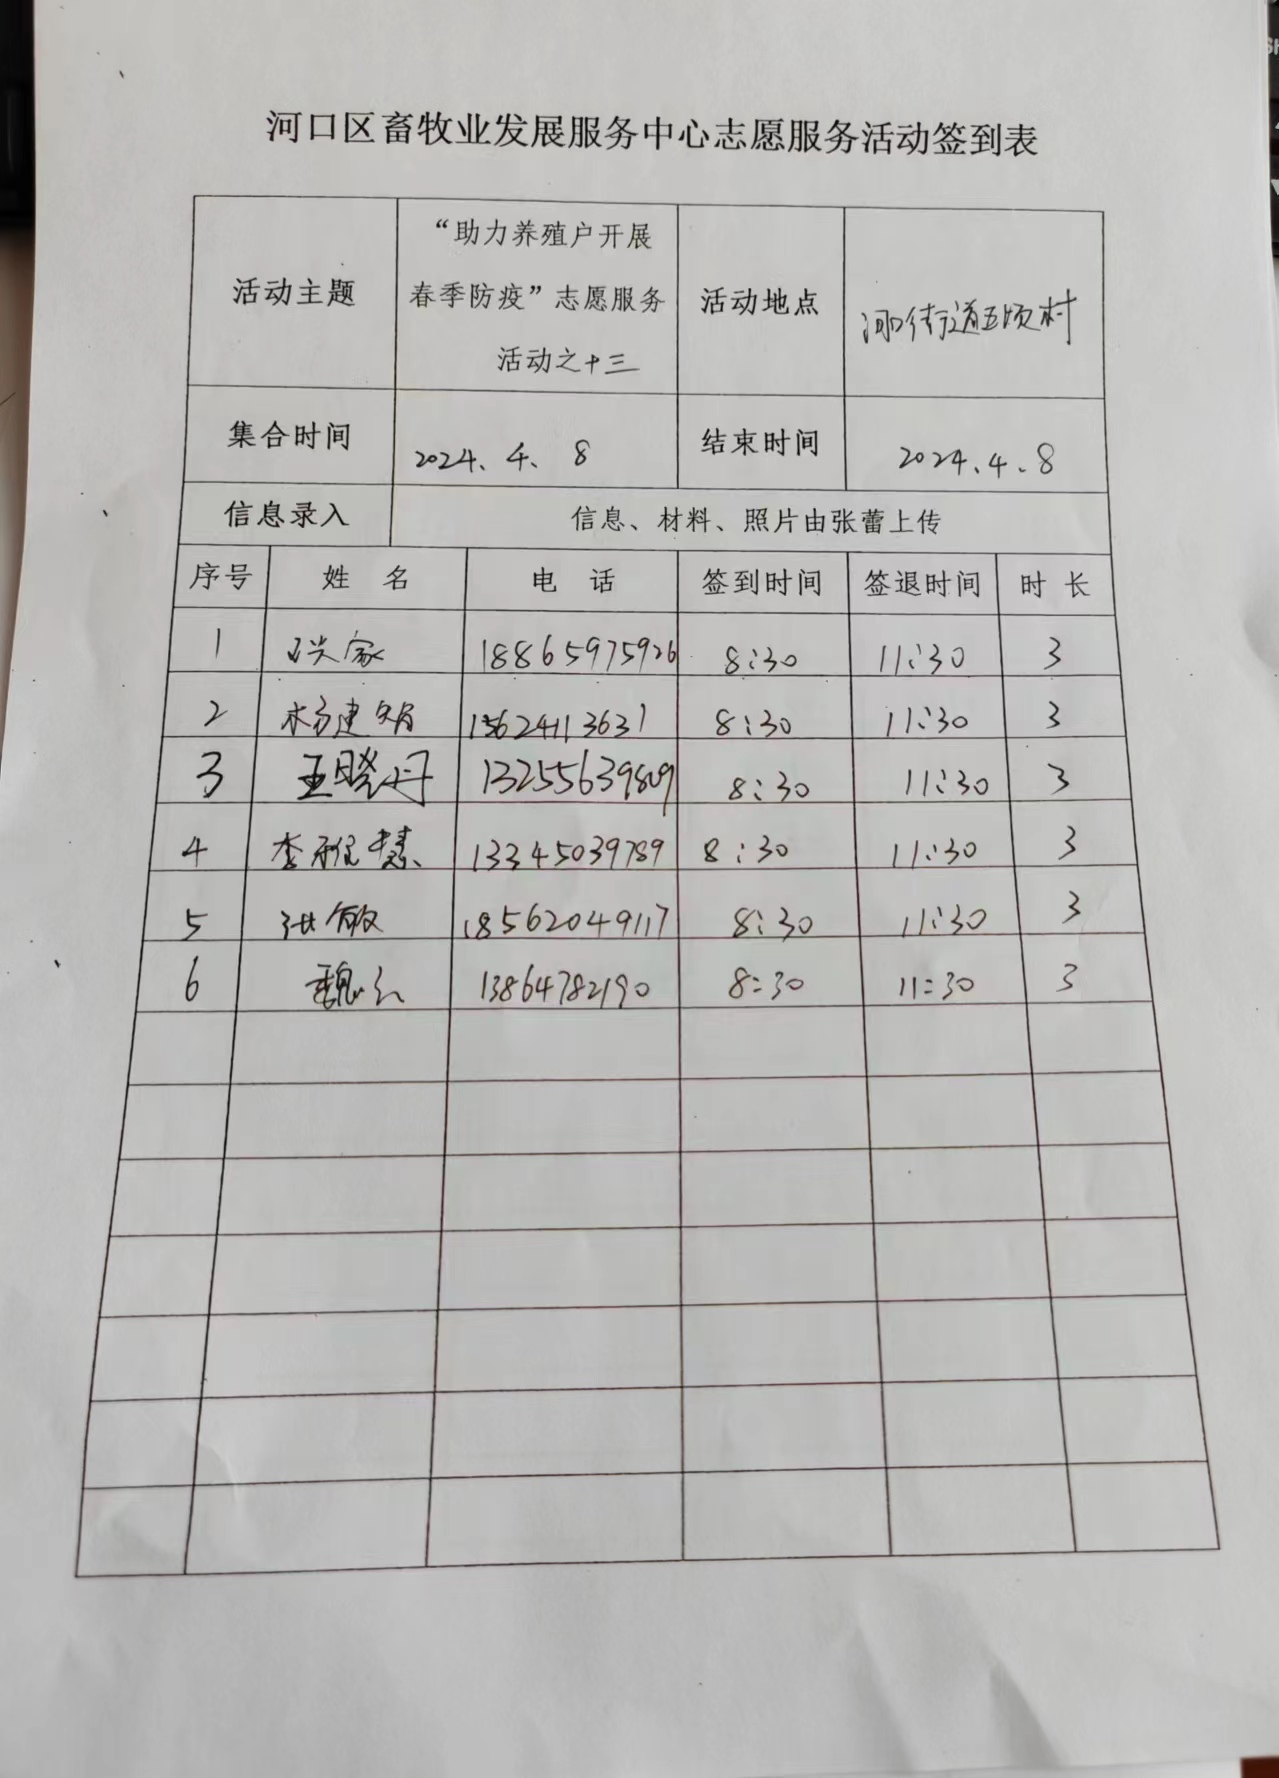 河口区畜牧业发展服务中心志愿服务活动签到表
活动主题 “助力养殖户开展春季防疫”志愿服务活动之十三 活动地点 河口街道五顷村
集合时间 2024.4.8 结束时间 2024.4.8
信息录入 信息、材料、照片由张蕾上传
序号 姓 名 电 话 签到时间 签退时间 时 长
1 家 18865975926 8:30 11:30 3
2 杨建娟 15624113631 8:30 11:30 3
3 王晓丹 13255639809 8:30 11:30 3
4 李雅慧 13345039789 8:30 11:30 3
5 张敏 18562049117 8:30 11:30 3
6 魏红 13864782190 8:30 11:30 3